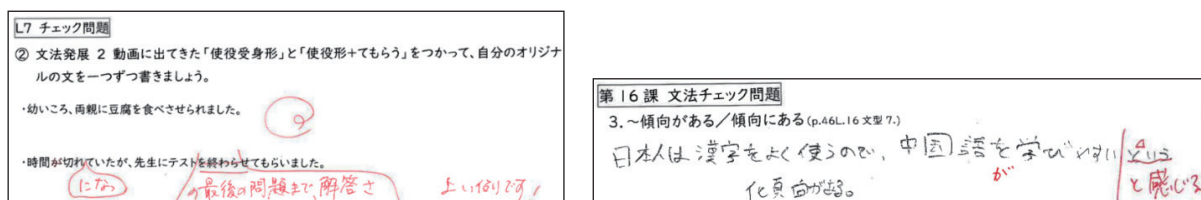 L7 チェック問題
② 文法発展 2 動画に出てきた「使役受身形」と「使役形+てもらう」をつかって、自分のオリジナ
ルの文を一つずつ書きましょう。
・幼いころ、両親に豆腐を食べさせられました。
・時間が切れていたが、先生にテストを終わらせてもらいました。
になっ
の最後の問題まで解答さ
第16課 文法チェック問題
3.～傾向がある/傾向にある(p.46L.16 文型 7.)
日本人は漢字をよく使うので、中国語を学びやすいという
が
と感じる
傾向がある。